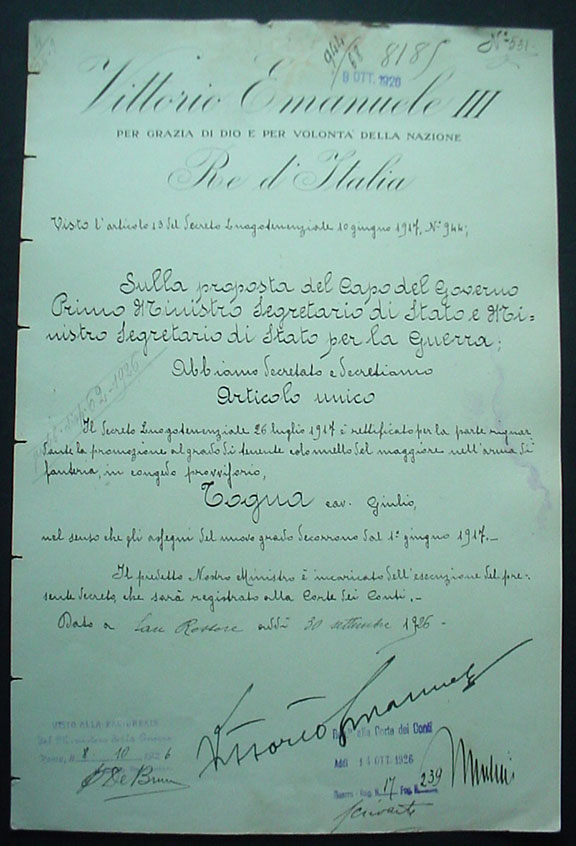 944/68 8185
9 OTT. 1926
N° 531
Vittorio Emanuele III
PER GRAZIA DI DIO E PER VOLONTÀ DELLA NAZIONE
Re d'Italia
Visto l'articolo 13 del Decreto Luogotenenziale 10 giugno 1917, N° 944;
Sulla proposta del Capo del Governo
Primo Ministro Segretario di Stato e Mi-
nistro Segretario di Stato per la Guerra;
Abbiamo Decretato e Decretiamo
Articolo unico
Il Decreto Luogotenenziale 26 luglio 1917 è rettificato per la parte riguar
dante la promozione al grado di tenente colonnello del maggiore nell'arma di
fanteria, in congedo provvisorio,
Togna cav. Giulio,
nel senso che gli assegni del nuovo grado decorrono dal 1° giugno 1917.-
Il predetto Nostro Ministro è incaricato dell'esecuzione del pre-
sente Decreto, che sarà registrato alla Corte dei Conti.-
Dato a San Rossore addì 30 settembre 1926-
Vittorio Emanuele
Reg. alla Corte dei Conti
Addì 14 OTT. 1926
Guerra - Reg. N. 17 Fog. N. 239
Mussolini
Roma, 8.10.1926